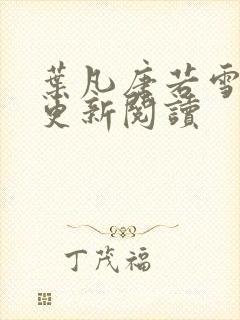 葉凡唐若雪
更新閱讀
丁茂福